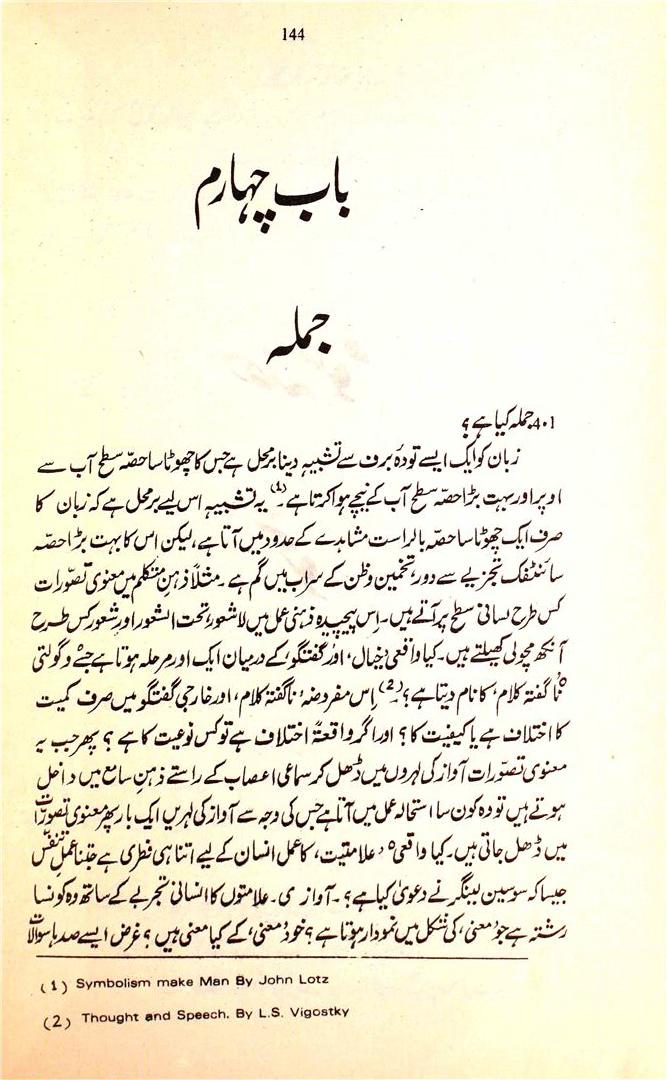 144
باب چہارم
جملہ
4.1 جملہ کیا ہے؟
زبان کو ایک ایسے تودۂ برف سے تشبیہ دینا برمحل ہے جس کا چھوٹا سا حصّہ سطح آب سے
اوپر اور بہت بڑا حصّہ سطح آب کے نیچے ہوا کرتا ہے۔(1) یہ تشبیہ اس لیے برمحل ہے کہ زبان کا
صرف ایک چھوٹا سا حصّہ بالراست مشاہدے کے حدود میں آتا ہے، لیکن اس کا بہت بڑا حصّہ
سائنٹفک تجزیے سے دور، تخمین وظن کے سراب میں گم ہے۔ مثلاً ذہنِ متکلم میں معنوی تصوّرات
کس طرح لسانی سطح پر آتے ہیں۔ اِس پیچیدہ ذہنی عمل میں لاشعور، تحت الشعور اور شعور کس طرح
آنکھ مچولی کھیلتے ہیں۔ کیا واقعی 'خیال، اور 'گفتگو' کے درمیان ایک اور مرحلہ ہوتا ہے جسے وگوتسکی
'ناگفتہ کلام' کا نام دیتا ہے؟(2) اِس مفروضہ 'ناگفتہ کلام، اور خارجی گفتگو میں صرف کمیت
کا اختلاف ہے یا کیفیت کا؟ اور اگر واقعتہً اختلاف ہے تو کس نوعیت کا ہے؟ پھر جب یہ
معنوی تصوّرات آواز کی لہروں میں ڈھل کر سماعی اعصاب کے راستے ذہنِ سامع میں داخل
ہوتے ہیں تو وہ کون سا استحالہ عمل میں آتا ہے جس کی وجہ سے آواز کی لہریں ایک بار پھر معنوی تصوّرات
میں ڈھل جاتی ہیں۔ کیا واقعی 'علامتیت، کا عمل انسان کے لیے اتنا ہی فطری ہے جتنا عملِ تنفّس
جیسا کہ سوسین لینگر نے دعویٰ کیا ہے؟ ۔ آواز ی۔ علامتوں کا انسانی تجربے کے ساتھ وہ کونسا
رشتہ ہے جو 'معنی، کی شکل میں نمودار ہوتا ہے؟ خود 'معنی، کے کیا معنی ہیں؟ غرض ایسے صدہا سوالات
(1) Symbolism make Man By John Lotz
(2) Thought and Speech. By L.S. Vigostky